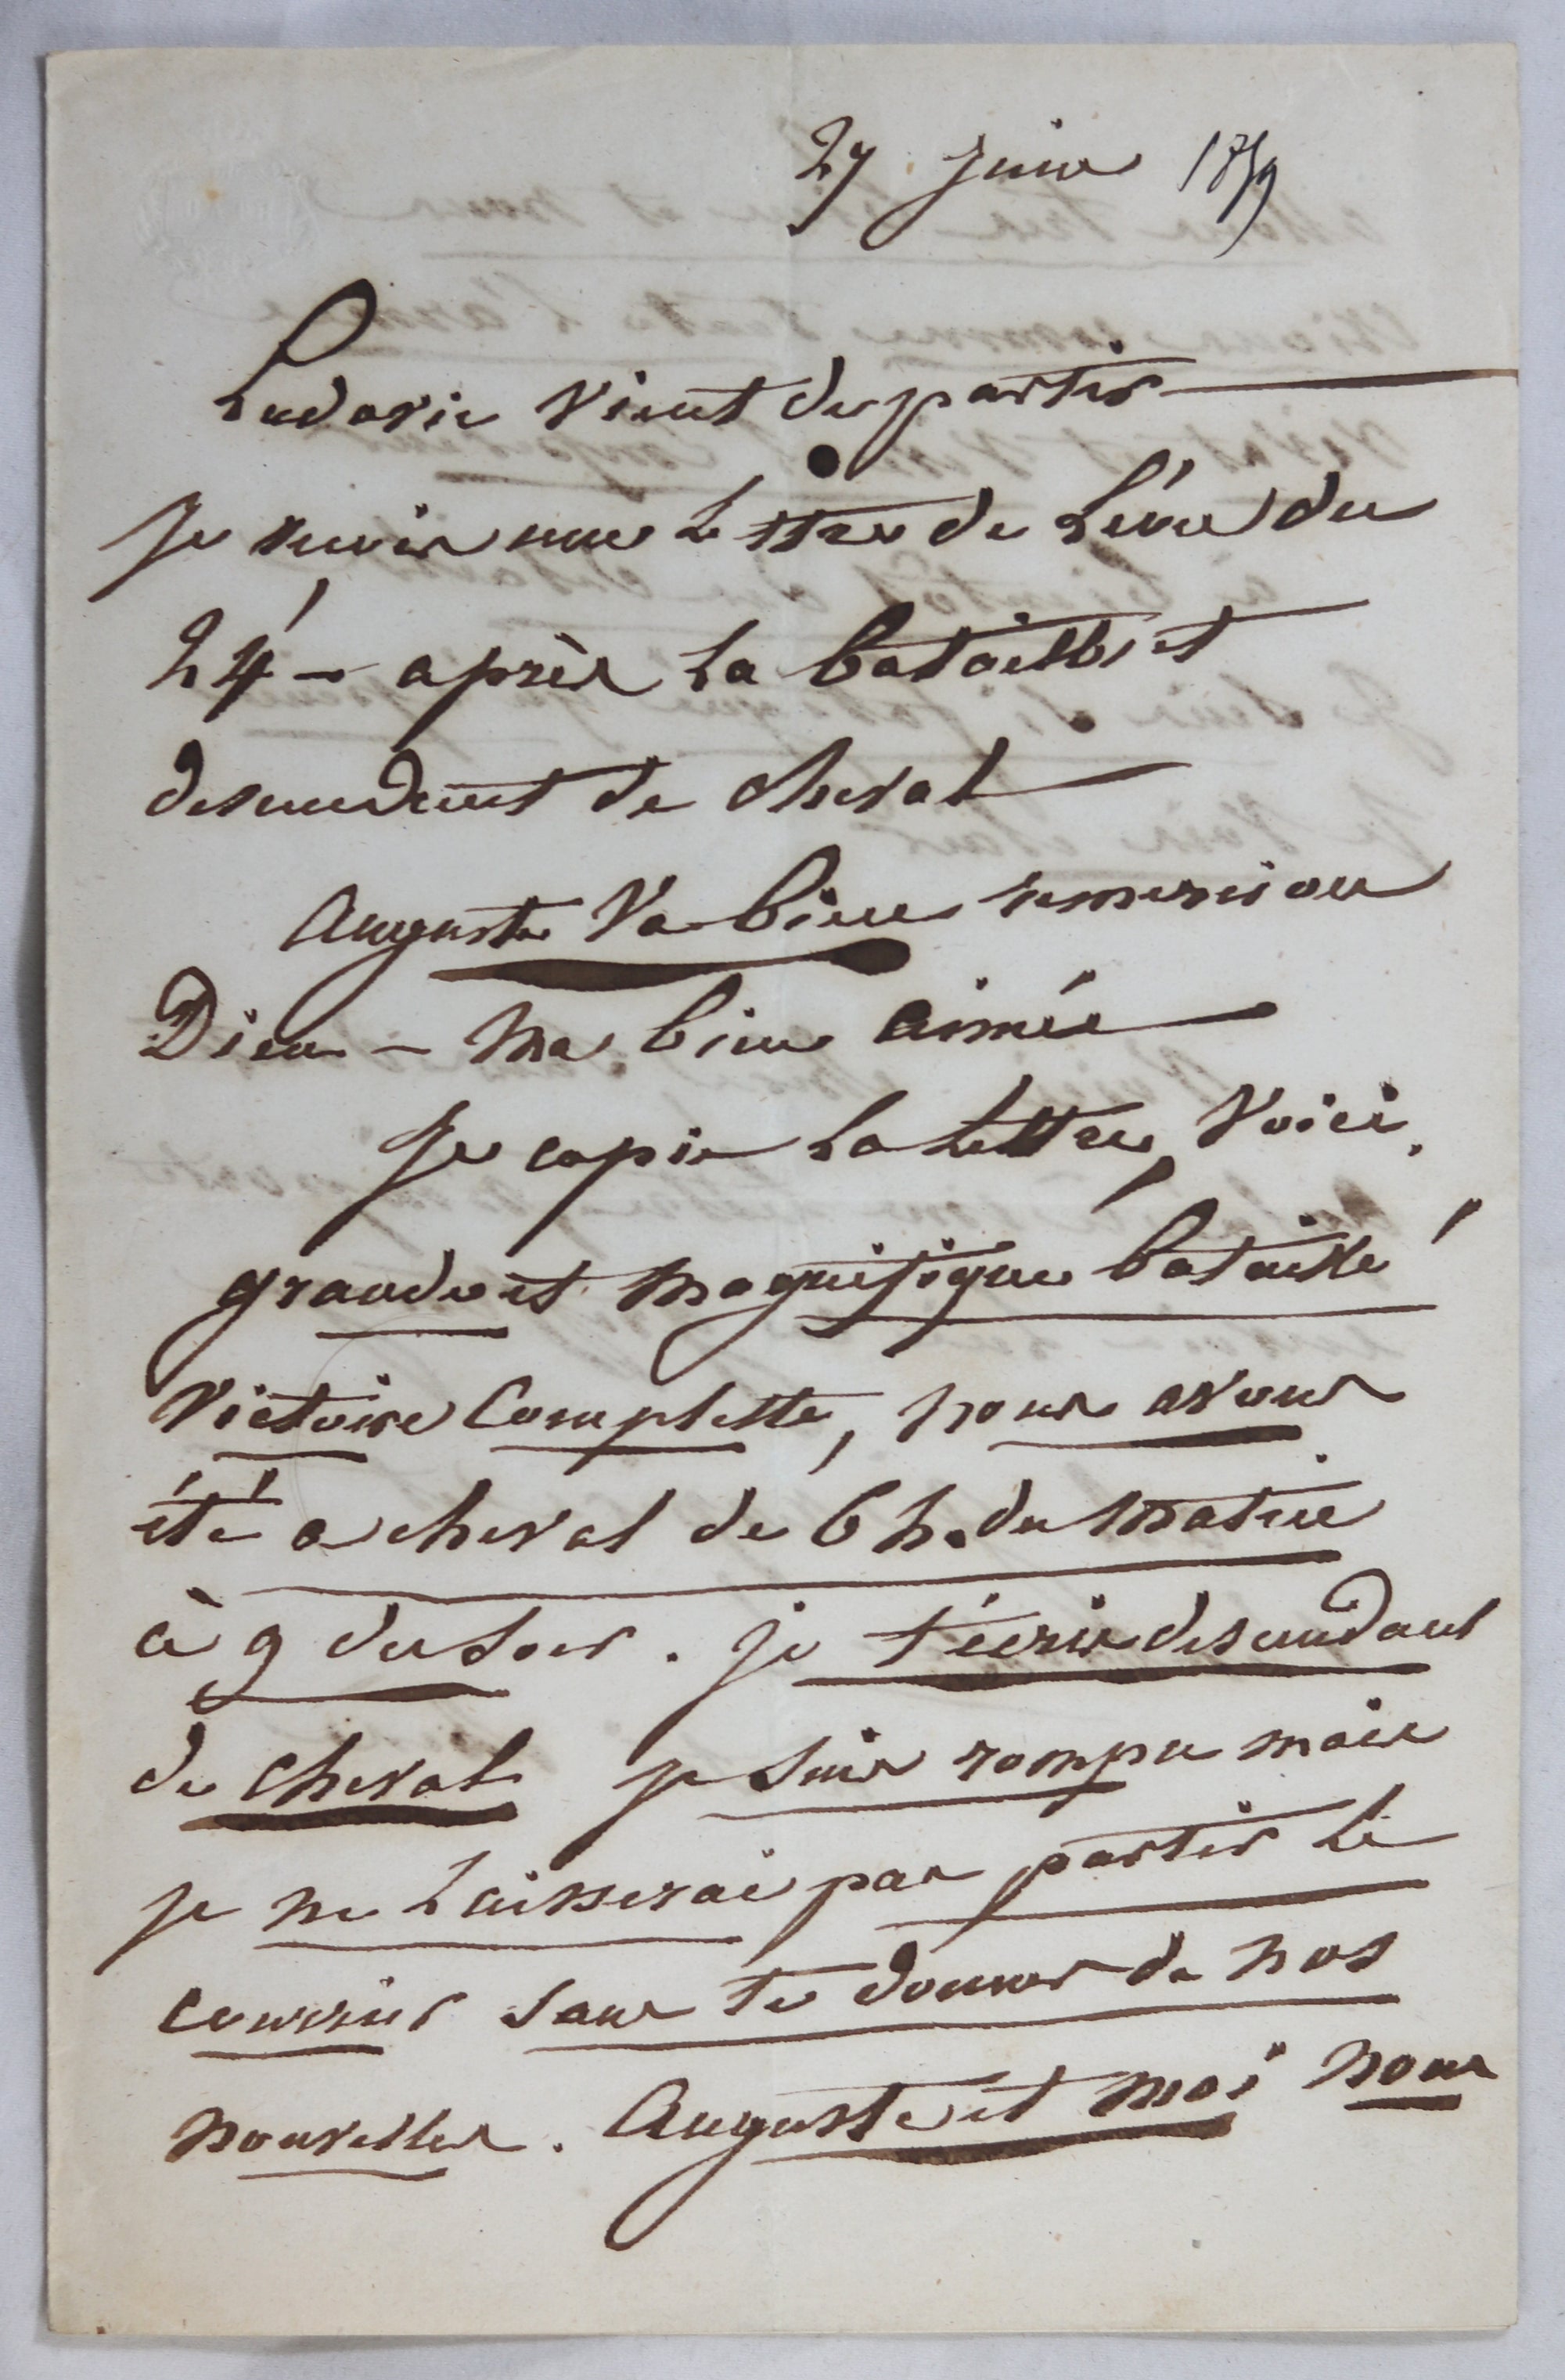 27 juin 1859
Ludovic vient de partir
je reçois une lettre de Léon du
24 – après la bataille et
descendant de cheval
Auguste va bien remercions
Dieu – ma bien aimée
Je copie la lettre, voici.
grande et magnifique bataille
victoire complette, nous avons
été a cheval de 6 h. du matin
à 9 du soir. je t'écris descendant
de cheval je suis rompu mais
je ne laisserai pas partir le
courrier sans te donner de nos
nouvelles. Auguste et moi nous